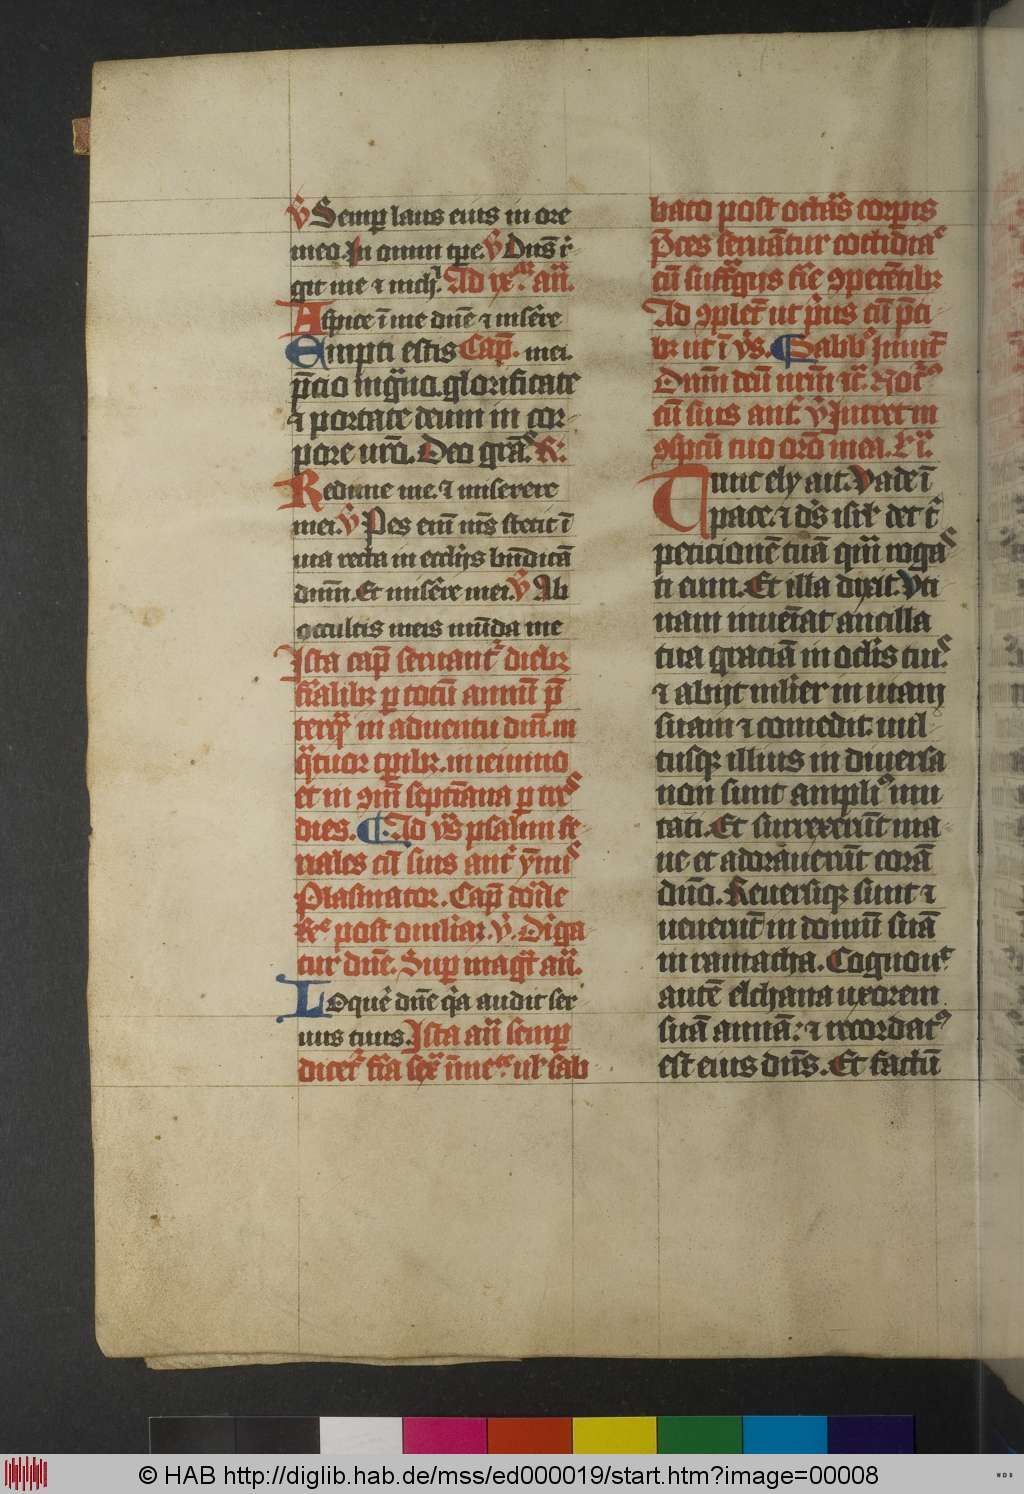 ꝟ Semꝑ laus eius in ore
meo. In omni tꝑe. ꝟ Dn̄s
git me ⁊ nich̓. Ad ix. an̄.
Aspice ī me dn̄e ⁊ miser̄e
Empti estis Cap̄. mei.
p̄cio mag̓no. glorificate
⁊ portate deum in cor-
pore vr̄o. Deo gr̄a. ℟:
Redime me. ⁊ miserere
mei. ꝟ Pes eni̅ m̄s stetit ī
via recta in eccl̄ijs bn̄dicā
dnm̄. Et miser̄e mei. ꝟ Ab
occultis meis mu̅da me
Ista cap̄ seruant̓ dieb
fr̄alib ꝑ totū annū p̄
terq̄ in aduentu dn̄i. in
q̄tuor tꝑib. in ieiunio
et in septīana ꝑ tres
dies. Ad vs̄ psalmi fe-
riales cū suis ant̓ ymn̓
Plasmator. Cap̄
post omiliar. ꝟ. Dirīga
tur dn̄e. Suꝑ mag̅t an̄.
Loquer̓ dn̄e q̓a audit ser
uus tuus. Ista an̄ semꝑ
dicet̓ fr̄a sab
bato post octa̅s corpris
P̄ces seruāntur cotidia
cū suffrag̓ijs
Ad ꝯplet̄ ut pri̓us cū p̄ci-
b ut ī vs̄. Sabb̓o Inuit̄
Dnm̄ deū nr̄m
cū suis ant̓. ꝟ Intret in
ꝯspc̄tu tuo or̄o mea.
Tunc ely ait. Vade ī
pace. ⁊ ds̄ isr̄l det t̓
peticionē tuā qm̄ roga
ti eum. Et illa dixit. Vti
nam inuen̄iat ancilla
tua graciā in ocl̓is tuis.
⁊ abijt ml̓ier in uiam
suam ⁊ comedit. uul
tusq illius in diuersa
non sunt ampli̓ mu
tati. Et surrexerūt ma
ne et adorauerūt corā
dn̄o. Reuersiq sunt ⁊
uenerūt in domū suā
in ramatha. Cognouit
autē elchana uxorem
suā annā: ⁊ recordat̓
est eius dn̄s. Et factū
© HAB http://diglib.hab.de/mss/ed000019/start.htm?image=00008